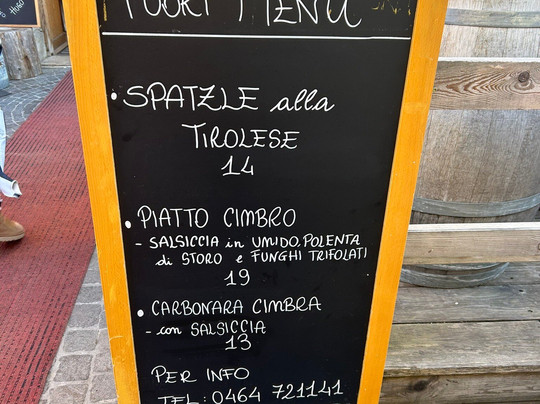 FUORI MENU
• SPATZLE alla
TIROLESE
14
• PIATTO CIMBRO
- SALSICCIA in UMIDO, POLENTA
di STORO e FUNGHI TRIFOLATI
19
• CARBONARA CIMBRA
- con SALSICCIA
13
PER INFO
TEL: 0464 721141
HUGO